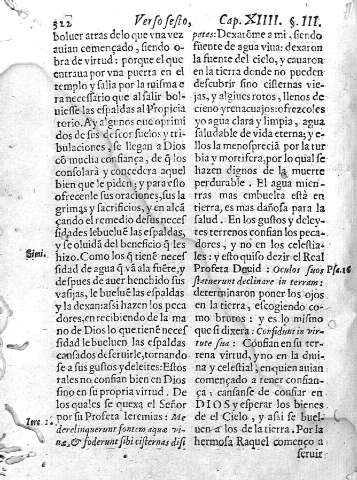 322 Verso sesto, Cap. XIIII. §. III.
boluer atras de lo que vna vez
auian començado, siendo o-
bra de virtud: porque el que
entraua por vna puerta en el
templo y salia por la misma e
ra necessario que al salir bol-
uiesse las espaldas al Propicia
torio. Ay algunos que oprimi
dos de sus descosuelos y tri-
bulaciones, se llegan a Dios
cō mucha confiança, de q̃ los
consolará y concedera aquel
bien que le piden; y para esto
ofrecenle sus oraciones, sus la
grimas y sacrificios, y en alcã
çando el remedio de sus neces
sidades lebuelué las espaldas,
y se oluidã del beneficio q̃ les
Simi.
hizo. Como los q̃ tienẽ neces
sidad de agua q̃ vã a la fuẽte, y
despues de auer henchido sus
vasijas, le bueluẽ las espaldas
y la dexan: assi hazen los peca
dores, en recibiendo de la ma
no de Dios lo que tienẽ neces
sidad le bueluen las espaldas
cansados de seruirle, tornando
se a sus gustos y deleites: Estos
tales no confian bien en Dios
sino en su propria virtud. De
los quales se quexa el Señor
por su Profeta Ieremias: Me
Iere. 2.
dereliquerunt fontem aquæ vi-
uæ, & foderunt sibi cisternas diss
patas: Dexarõme a mi, siendo
fuente de agua viua: dexaron
la fuente del cielo, y cauaron
en la tierra donde no pueden
descubrir sino cisternas vie-
jas, y algiues rotos, llenos de
cieno y renacuajos: ofrezcoles
yo agua clara y limpia, agua
saludable de vida eterna; y e-
llos la menosprecia por la tur
bia y mortifera, por lo qual se
hazen dignos de la muerte
perdurable. El agua mien-
tras mas embuelta está en
tierra, es mas dañosa para la
salud. En los gustos y deley-
tes terrenos confian los peca-
dores, y no en los celestia-
les: y esto quiso dezir el Real
Profeta Dauid: Oculos suos
Psa. 16
statuerunt declinare in terram:
determinaron poner los ojos
en la tierra, escogiendo co-
mo brutos: y es lo mismo
que si dixera: Considunt in vir-
tute sua: Confian en su ter-
rena virtud, y no en la diui-
na y celestial, en quien auian
començado a tener confian-
ça: cansanse de confiar en
DIOS y esperar los bienes
de el Cielo, y assi se buel-
uen a los de la tierra. Por la
hermosa Raquel començo a
seruir